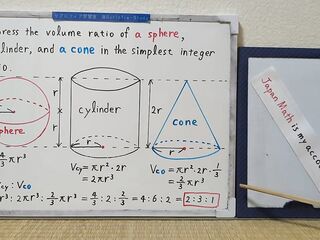 press the volume ratio of a sphere,
linder, and a cone in the simplest integer
io.
r
r
sphere
cylinder
r
2r
cone
r
4/3 πr³
Vcy = πr²・2r
= 2πr³
Vco = πr²・2r・1/3
= 2/3 πr³
cy : Vco
r³ : 2πr³ : 2/3 πr³ = 4/3 : 2 : 2/3 = 4 : 6 : 2 = 2 : 3 : 1
Japan Math is my accou